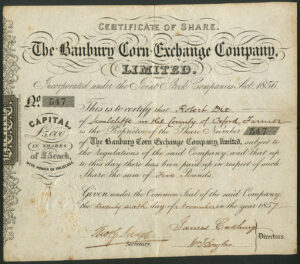 CERTIFICATE OF SHARE.
The Banbury Corn Exchange Company,
LIMITED.
Incorporated under the Joint Stock Companies Act. 1856.
No 547
CAPITAL
£5,000
IN SHARES
OF £5 each,
WITH POWER TO INCREASE
This is to certify that Robert
in the County of Oxford Farmer
is the Proprietor of the Share Number 547
of The Banbury Corn Exchange Company, limited, subject to
the regulations of the said Company; and that up
to this day there has been paid up in respect of such
Share the sum of Five Pounds.
Given under the Common Seal of the said Company,
the twenty sixth day of November in the year 1857.
James Cadbury
Secretary.
Directors.